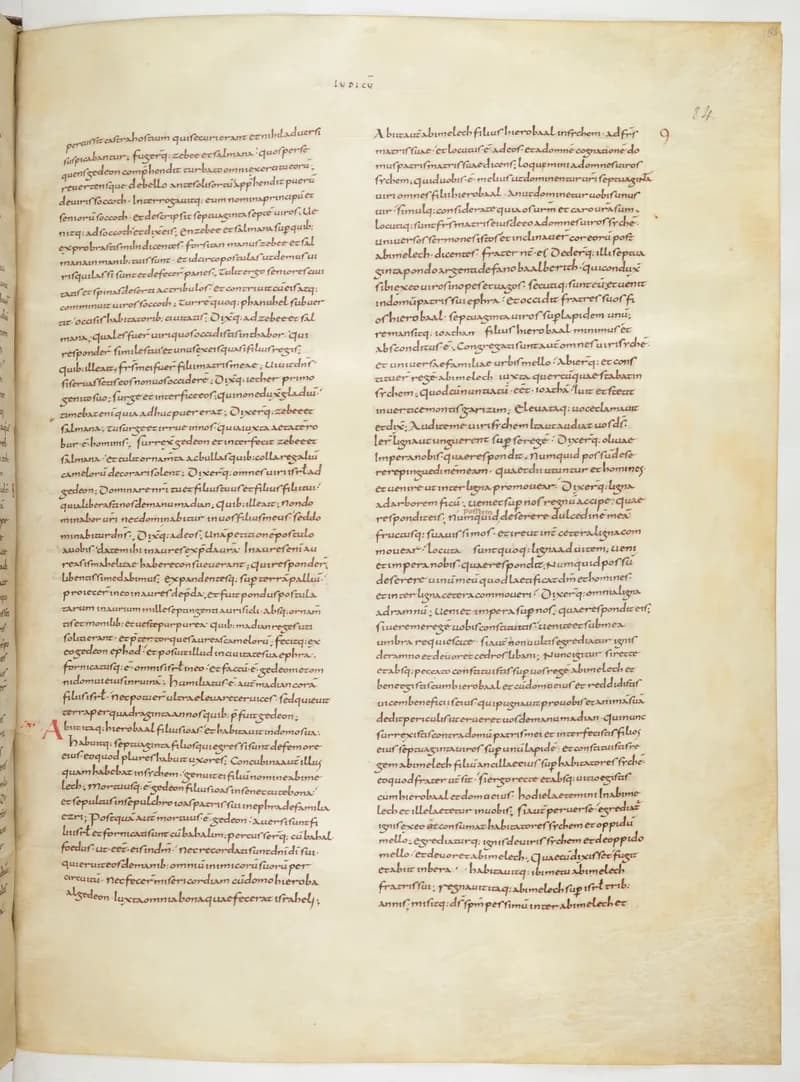 IUDICŨ
84
percussit castra hostium qui securi erant et nihil adversi
suspicabantur; fugerq: zebee et salmana · quos perse
quens gedeon comp̃hendit turbato omni exercitu eorũ;
revertensque de bello ante solis ortũ app̃hendit puerũ
de viris soccoth · Interrogavitq: eum nomina principũ et
seniorũ soccoth · et descripsit septuaginta septẽ viros; Ve
nitq: ad soccoth et dixit eis; En zebee et salmana sup quib:
exprobrastis mihi dicentes · forsitan manus zebee et sal
mana in manib: tuis sunt · et idcirco postulas ut demus vi
ris qui lassi sunt et defecer panes; Tulit ergo seniores civi
tatis et spinas deserti ac tribulos · et contrivit cũ eis atq:
comminuit viros soccoth; turrẽ quoq: phanuhel subver
tit · occisis habitatorib: civitatis; Dixitq: ad zebee et sal
mana; quales fuer viri quos occidistis in thabor · Qui
responder similes tui et unus ex eis quasi filius regis;
quib: ille ait; fr̃s mei fuer filii matris meae; Vivit dñs
si servassetis eos non vos occiderẽ; Dixitq: iether primo
genito suo; surge et interfice eos; qui non eduxit gladiũ;
timebat enĩ quia adhuc puer erat; Dixerq: zebee et
salmana; tu surge et irrue in nos · quia iuxta aetatẽ ro
bur ẽ hominis; surrexit gedeon et interfecit zebee et
salmana · et tulit ornam̃ta ac bullas quib: colla regaliũ
camelorũ decorari solent; Dixerq: omnes viri isrl̃ ad
gedeon; Dominare nr̃i tu et filius tuus et filius filii tui ·
quia liberasti nos de manu madian; Quib: ille ait; Non do
minabor vr̃i nec dominabitur in vos filius meus · sed do
minabitur dñs; Dixitq: ad eos; Unã petitionẽ postulo
a vobis · date mihi inaures ex p̃da vr̃a · Inaures enĩ au
reas ismahelitae habere consueverant; qui responder;
libentissime dabimus; expandentesq: sup terrã palliũ ·
proiecer in eo inaures de p̃da; et fuit pondus postula
tarum inaurium mille septingenti auri sicli · absq: ornam̃
tis et monilib: et veste purpurea · quib: madian reges uti
soliti erant · et p̃ter torques aureas camelorũ; fecitq: ex
eo gedeon ephod · et posuit illud in civitate sua ephra;
fornicatusq: ẽ omnis isrl̃ in eo · et factũ ẽ gedeoni et om
ni domui eius in ruinã; humiliatus ẽ aut̃ madian corã
filiis isrl̃ · nec potuer ultra elevare cervices · sed quievit
terra per quadraginta annos quib: p̃fuit gedeon;
Abiit itaq: hierobaal filius ioas et habitavit in domo sua;
Habuitq: septuaginta filios qui egressi sunt de femore
eius · eo quod plures haberet uxores; Concubina aut̃ illius
quam habebat in sychem · genuit ei filiũ nomine abime
lech; Mortuusq: ẽ gedeon filius ioas in senectute bona ·
et sepultus in sepulchro ioas patris sui in ephra de familia
ezri; Postquã aut̃ mortuus ẽ gedeon · aversi sunt fi
lii isrl̃ et fornicati sunt cũ babalim; percusserq: cũ bahal
foedus · ut eẽt eis in dm̃ · nec recordati sunt dñi dī sui ·
qui eruit eos de manib: omniũ inimicorũ suorũ per
circuitũ · nec fecer misericordiam cũ domo hieroba
al gedeon · Iuxta omnia bona quae fecerat israheli;
9
Abiit aut̃ abimelech filius hierobaal in sychem · ad fr̃s
matris suae · et locutus ẽ ad eos · et ad omnẽ cognationẽ do
mus patris matris suae dicens; loquimini ad omnes viros
sychem; quid vobis ẽ melius ut dominentur vr̃i septuaginta
viri omnes filii hierobaal · An ut dominetur vobis unus
vir · simulq: considerate quia os vr̃m et caro vr̃a sum;
locutiq: sunt fr̃s matris eius de eo ad omnes viros sychẽ·
universos sermones istos et inclinaver cor eorũ post
abimelech · dicentes · frater nr̃ ẽ; Dederq: illi septua
ginta pondo argenti de fano baalberith · qui conduxit
sibi ex eo viros inopes et vagos · secutiq: sunt eũ · et venit
in domũ patris sui ephra · Et occidit fratres suos fi
os hierobaal · septuaginta viros sup lapidem unũ;
remansitq: ioathan filius hierobaal minimus et
absconditus ẽ; Congregati sunt aut̃ omnes viri sychẽ
et universae familiae urbis mello · Abierq: et cons
tituer regẽ abimelech iuxta quercũ quae stabat in
sychem; Quod cũ nuntiatũ eẽt · ioathã · Ivit et stetit
in vertice montis garizim; Elevataq: voce clamavit
et dixit; Audite me viri sychem ita ut audiat vos ds̃ ·
Ier ligna ut unguerent sup se regẽ · Dixerq: olivae
Impera nobis quae respondit; Numquid possũ dese
rere pinguedinẽ meam · qua et dii utuntur et homines
et venire ut inter ligna promovear · Dixerq: ligna
ad arborem ficũ; veni et sup nos regnũ accipe; quae
respondit eis; numquid possum deserere dulcedinẽ meã
fructusq: suavissimos · et ire ut int̃ cetera ligna com
movear · locuta sunt quoq: ligna ad vitem; veni
et impera nobis · quae respondit; Numquid possũ
deserere vinũ meũ quod laetificat dm̃ et homines ·
et inter ligna cetera commoveri · Dixerq: omnia ligna
ad ramnũ; Veni et impera sup nos; quae respondit eis;
si vere me regẽ vobis constituitis; venite et sub mea
umbra requiescite · si aut̃ non vultis egrediatur ignis
de ramno et devoret cedros libani; Nunc igitur si recte
et absq: peccato constituistis sup vos regẽ abimelech et
bene egistis cum hierobaal · et cũ domo eius et reddidistis
vicem beneficiis eius · qui pugnavit pro vobis et animã suã
dedit periculis ut erueret vos de manu madian · qui nunc
surrexistis contra domũ patris mei et interfecistis filios
eius septuaginta viros sup unũ lapidẽ · et constituistis re
gem abimelech filiũ ancillae eius sup habitatores sychẽ ·
eo quod frater vr̃ sit · si ergo recte et absq: vitio egistis
cum hierobaal et domo eius · hodie laetemini in abime
lech et ille laetetur in vobis; si aut̃ perverse egrediat̃
ignis ex eo et consumat habitatores sychem et oppidũ
mello; egrediaturq: ignis de viris sychem et de oppido
mello · et devoret abimelech; Quae cũ dixisset fugit
et abiit in bera · habitavitq: ibi metu abimelech
fratris sui; regnavit itaq: abimelech sup isrl̃ trib:
annis; misitq: ds̃ sp̃m pessimũ inter abimelech et